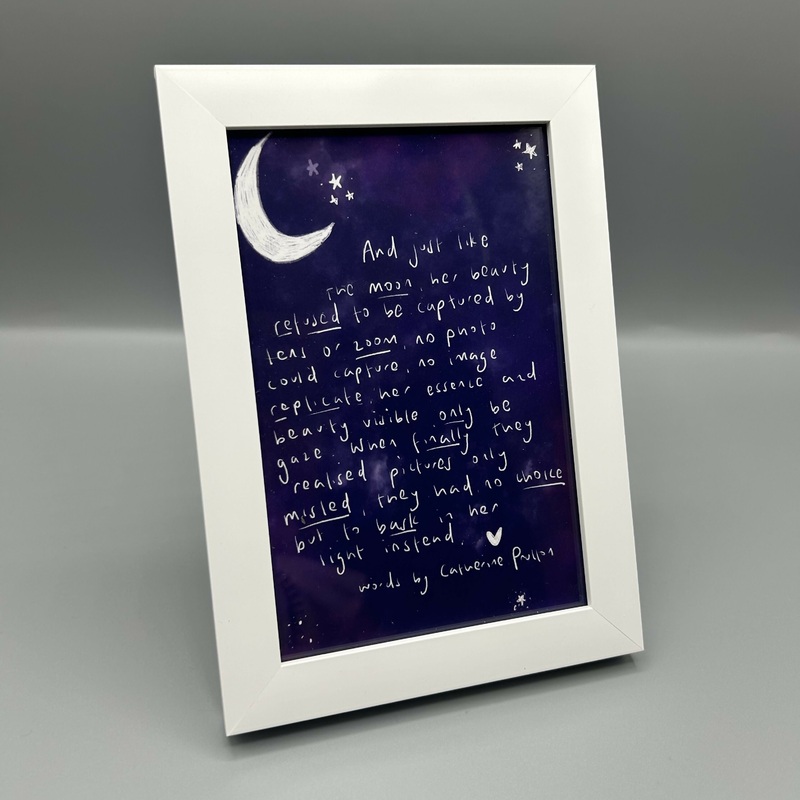 And just like
the moon, her beauty
refused to be captured by
lens or zoom, no photo
could capture, no image
replicate, her essence and
beauty visible only be
gaze. When finally they
realised pictures only
misled, they had no choice
but to bask in her
light instead.
words by Catherine Prutton